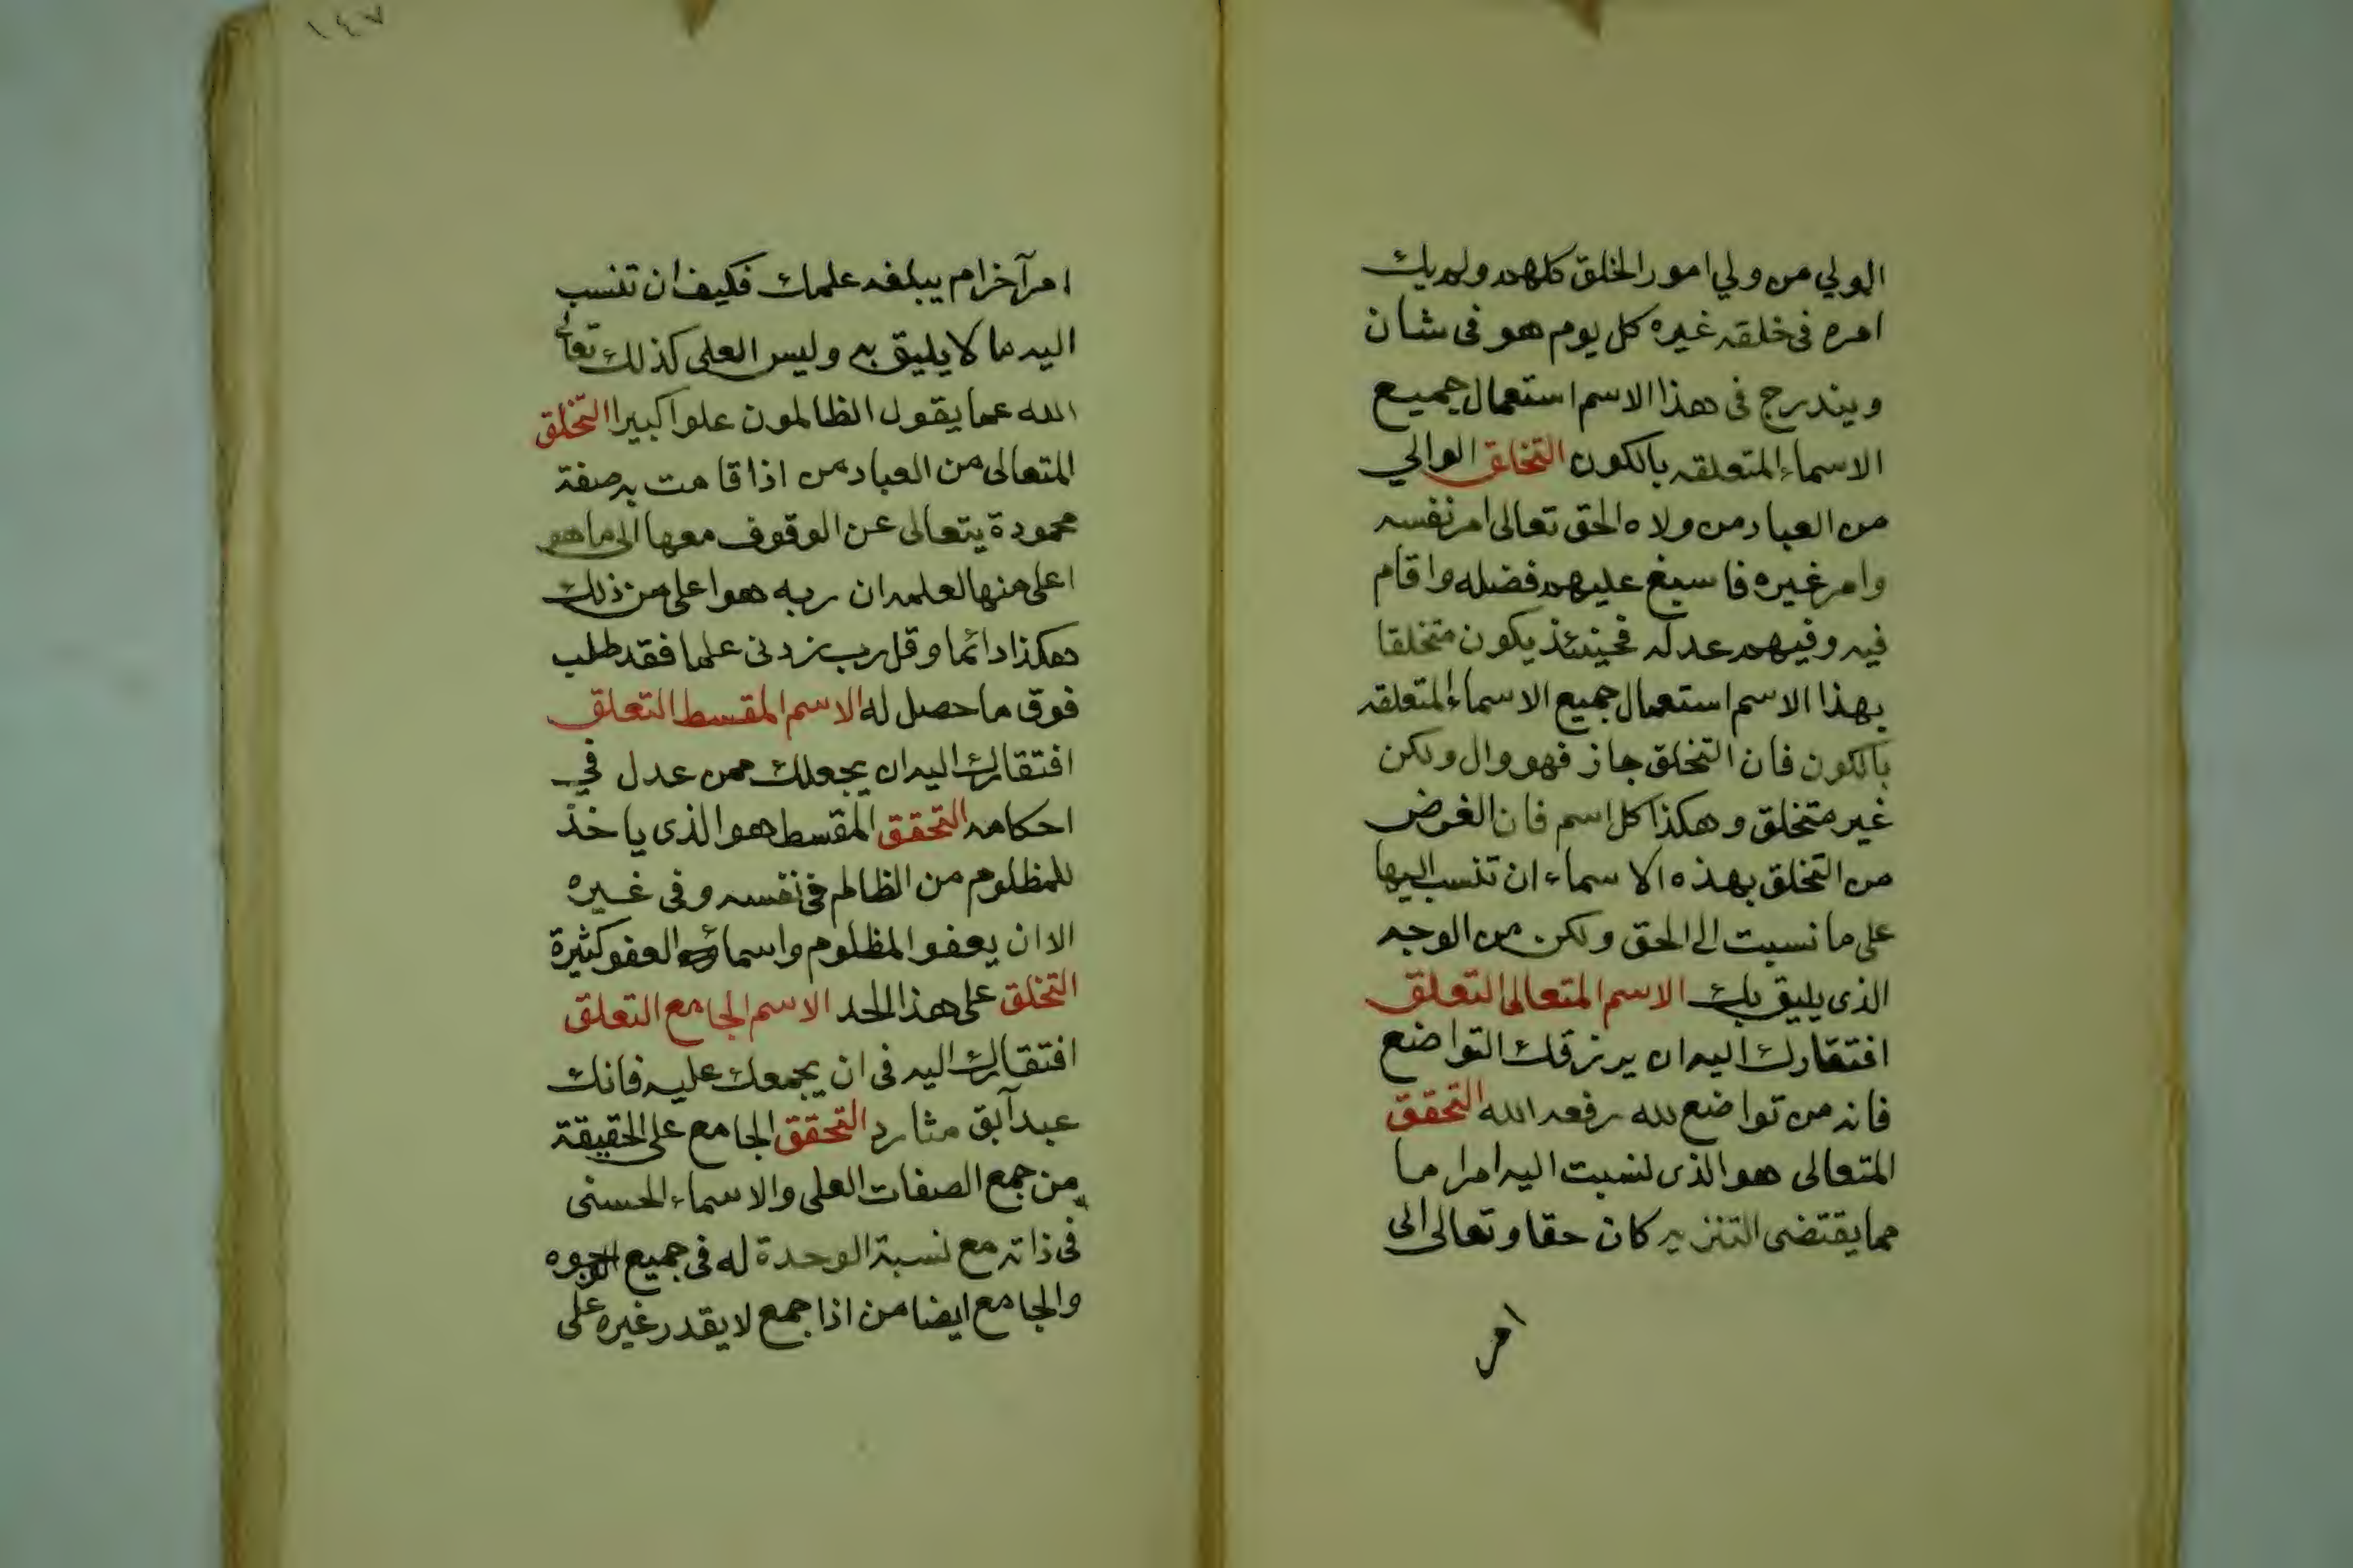 الولي من ولي امور الخلق كلهم ولم يك
امره فى خلقه غيره كل يوم هو فى شان
ويندرج فى هذا الاسم استعمال جميع
الاسماء المتعلقه بالكون التخلق الوالي
من العباد من ولاه الحق تعالى امر نفسه
وامر غيره فاسبغ عليهم فضله واقام
فيه وفيهم عدله فحينئذ يكون متخلقا
بهذا الاسم استعمال جميع الاسماء المتعلقه
بالكون فان التخلق جاز فهو وال ولكن
غير متخلق وهكذا كل اسم فان الغرض
من التخلق بهذه الاسماء ان تنسب اليها
على ما نسبت الى الحق ولكن من الوجه
الذى يليق بك الاسم المتعالى التعلق
افتقارك اليه ان يرزقك التواضع
فانه من تواضع لله رفعه الله التحقق
المتعالى هو الذى نسبت اليه امرا ما
مما يقتضى التنزيه كان حقا وتعالى الى
امر
١٤٧
امر آخر ام يبلغه علمك فكيف ان تنسب
اليه ما لا يليق به وليس العلى كذلك تعالى
الله عما يقول الظالمون علوا كبيرا التخلق
المتعالى من العباد من اذا قامت به صفة
محمودة يتعالى عن الوقوف معها الى ما هو
اعلى منها لعلمه ان ربه هو اعلى من ذلك
هكذا دائما وقل رب زدنى علما فقد طلب
فوق ما حصل له الاسم المقسط التعلق
افتقارك اليه ان يجعلك ممن عدل في
احكامه التحقق المقسط هو الذى ياخذ
للمظلوم من الظالم فى نفسه وفى غيره
الا ان يعفو المظلوم واسمائه العفو كثيرة
التخلق على هذا الحد الاسم الجامع التعلق
افتقارك اليه فى ان يجمعك عليه فانك
عبد آبق مثارد التحقق الجامع على الحقيقة
من جمع الصفات العلى والاسماء الحسنى
فى ذاته مع نسبة الوحدة له فى جميع الوجوه
والجامع ايضا من اذا جمع لا يقدر غيره على